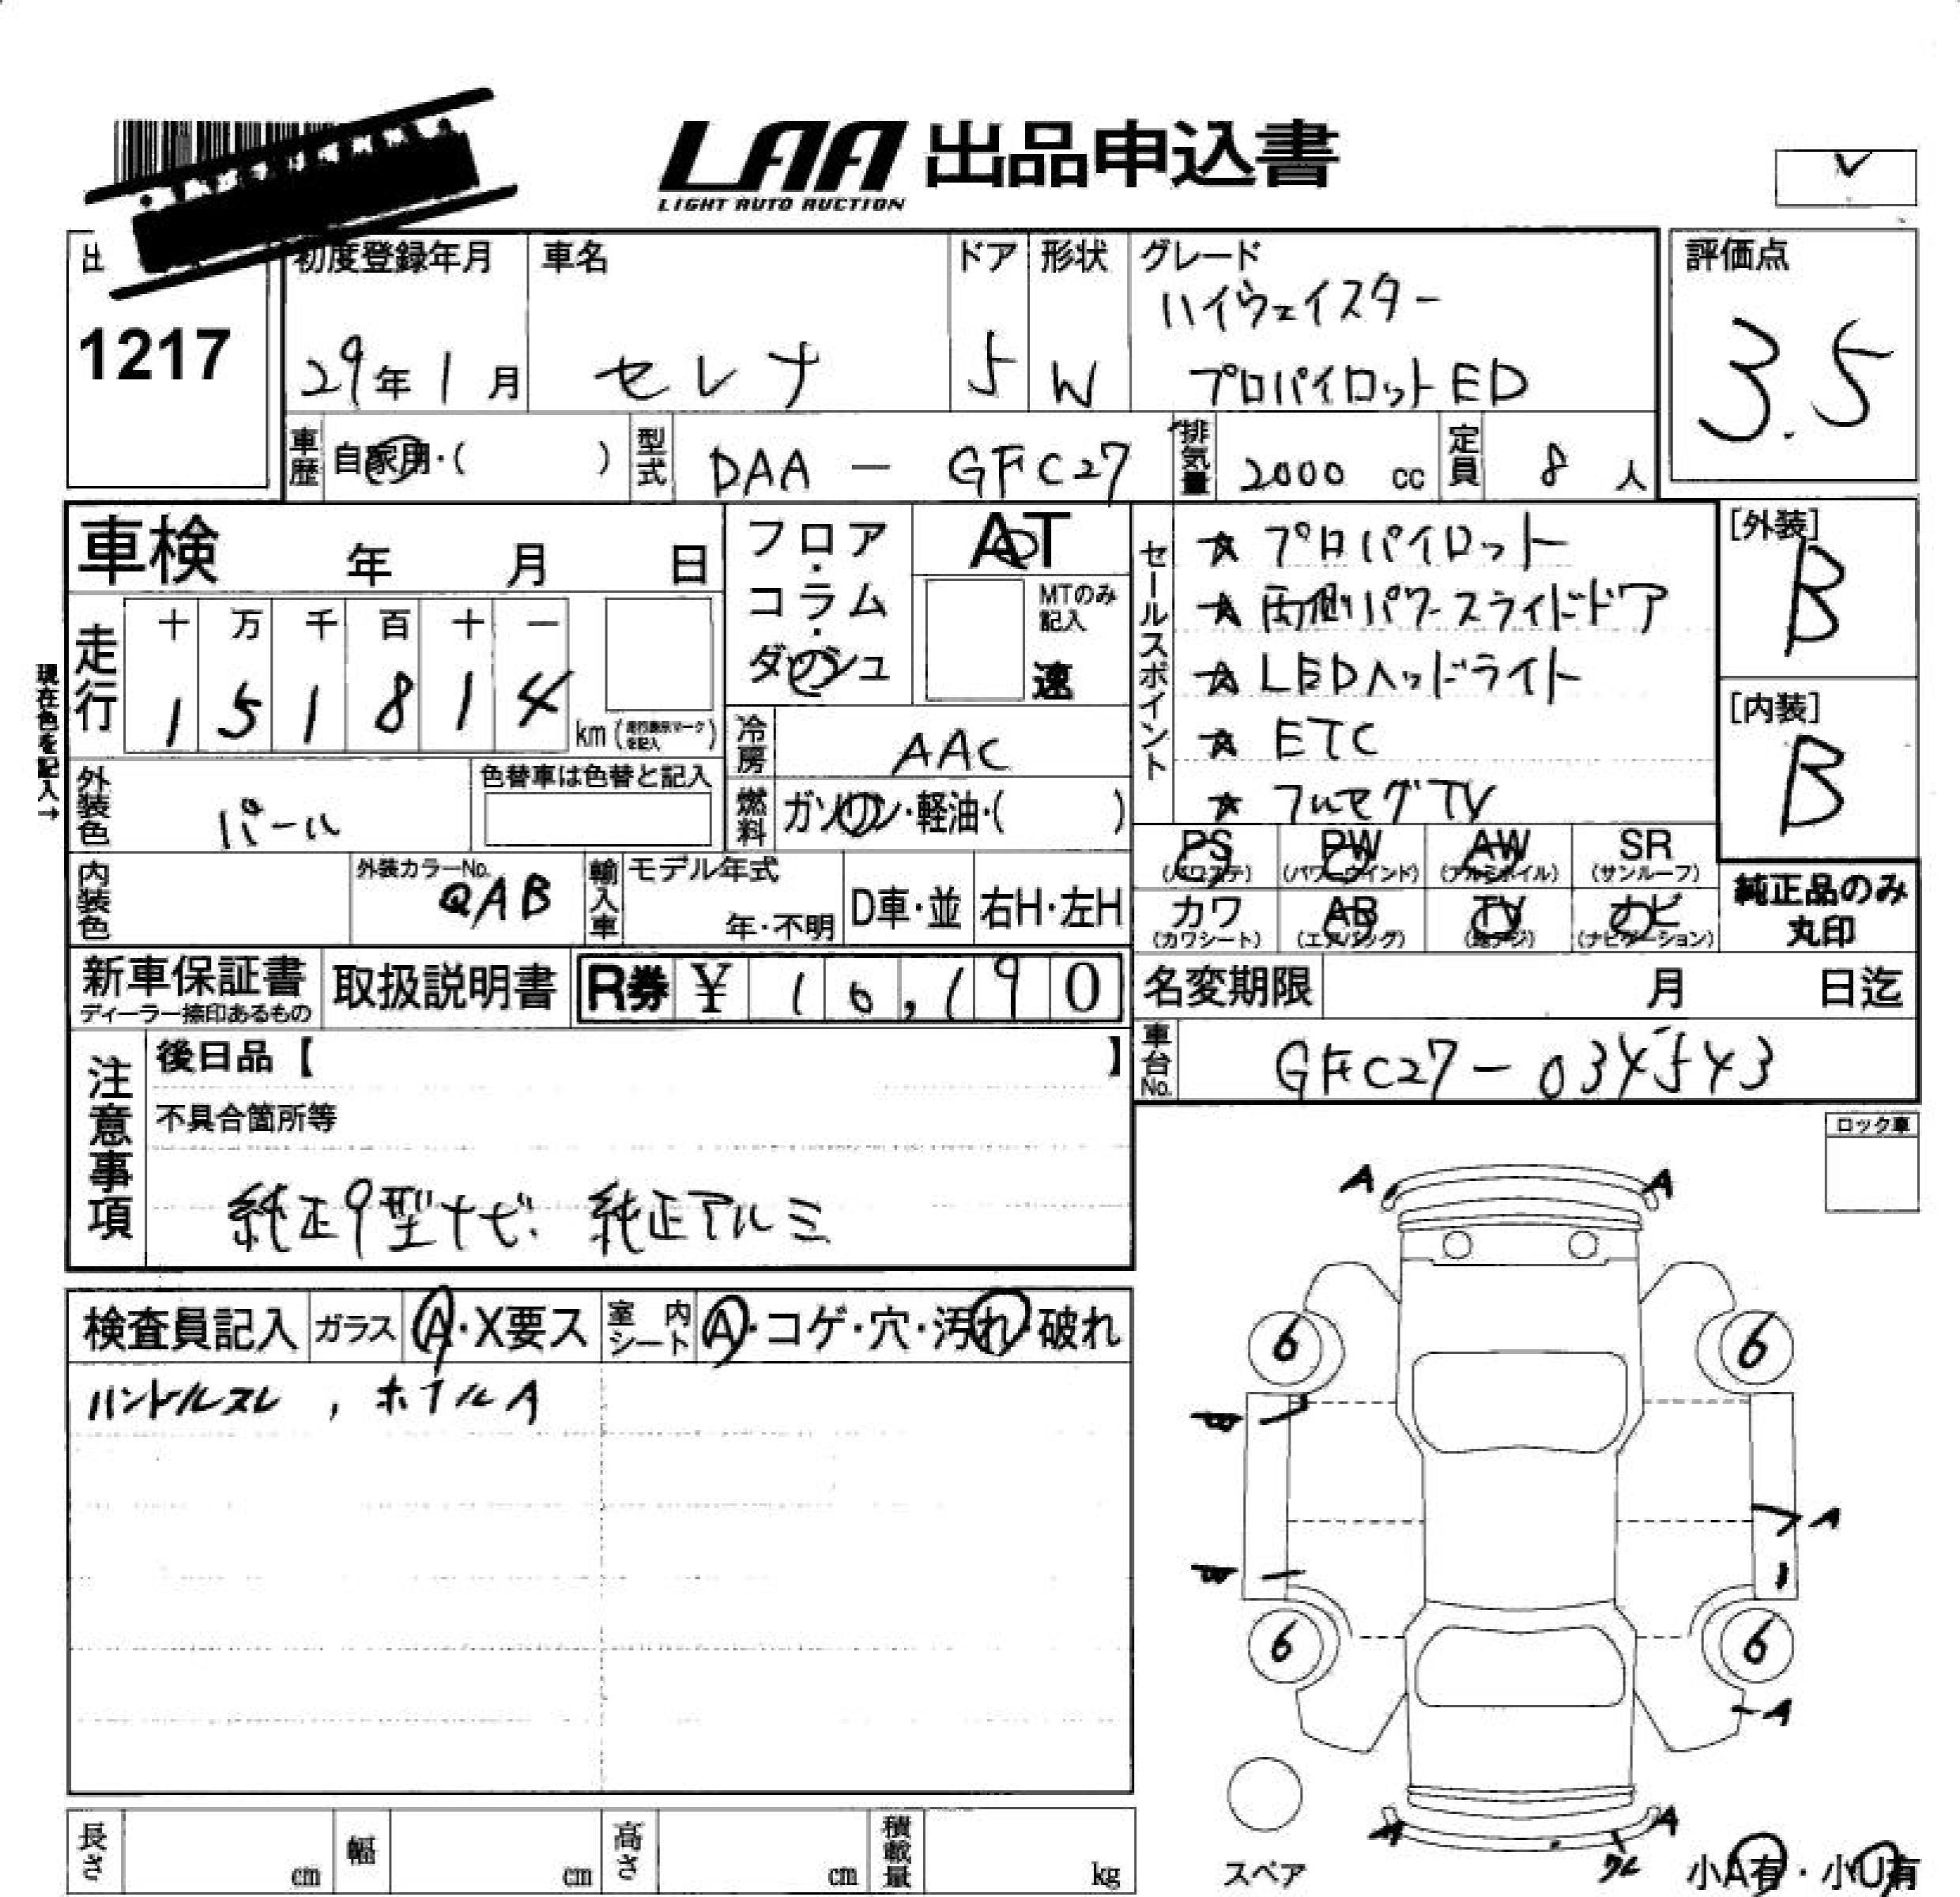 LAA 出品申込書
LIGHT AUTO AUCTION
出
1217
初度登録年月
29年1月
車名
セレナ
ドア
5
形状
W
グレード
ハイウェイスター
プロパイロットED
評価点
3.5
車歴 自家用・( )
型式 DAA - GFC27
排気量 2000 cc
定員 8 人
車検 年 月 日
フロア・コラム・ダッシュ
AT
MTのみ記入
速
セールスポイント
☆ プロパイロット
☆ 両側パワースライドドア
☆ LEDヘッドライト
☆ ETC
☆ フルセグTV
[外装]
B
[内装]
B
現在色を記入→
走行
十 万 千 百 十 一
1 5 1 8 1 4 km
冷房 AAC
外装色 パール
色替車は色替と記入
燃料 ガソリン・軽油・( )
内装色
外装カラーNo.
QAB
輸入車 モデル年式
年・不明
D車・並 右H・左H
PS (パワステ)
PW (パワーウインド)
AW (アルミホイル)
SR (サンルーフ)
カワ (カワシート)
AB (エアバッグ)
TV (地デジ)
ナビ (ナビゲーション)
純正品のみ
丸印
新車保証書
ディーラー捺印あるもの
取扱説明書
R券 ¥ 1 0, 1 9 0
名変期限 月 日迄
車台No. GFC27-034543
注意事項
後日品【 】
不具合箇所等
純正9型ナビ. 純正アルミ
ロック車
検査員記入
ガラス A・X要ス
室内シート A・コゲ・穴・汚れ・破れ
ハンドルスレ , ホイルA
A A
6 6
W
A
W
6 6
A
A A
スペア
小A有・小U有
長さ cm
幅 cm
高さ cm
積載量 kg